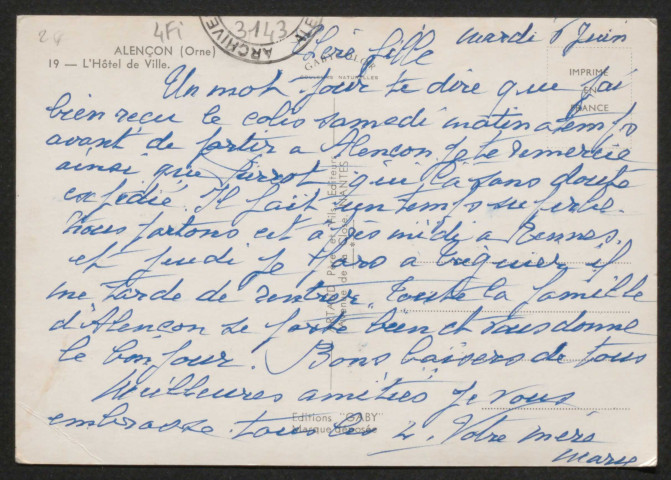 24
4Fi
3143
ARCHIVE
ALENÇON (Orne)
19 — L'Hôtel de Ville.
GABY
COULEURS NATURELLES
IMPRIMÉ
EN
FRANCE
Mardi 6 Juin
Chère fille
Un mot pour te dire que j'ai
bien reçu le colis samedi matin a temps
avant de partir a Alençon. Je te remercie
ainsi que Pierrot qui l'a sans doute
expédié. Il fait un temps superbe.
Nous partons cet après midi a Rennes.
et jeudi je serai a Tréguier il
me tarde de rentrer. Toute la famille
d'Alençon se porte bien et vous donne
le bonjour. Bons baisers de tous
Meilleures amitiés Je vous
embrasse tous les 2. Votre mère
Marie
Père et Fils Éditeurs
NANTES
Editions "GABY"
Marque déposée